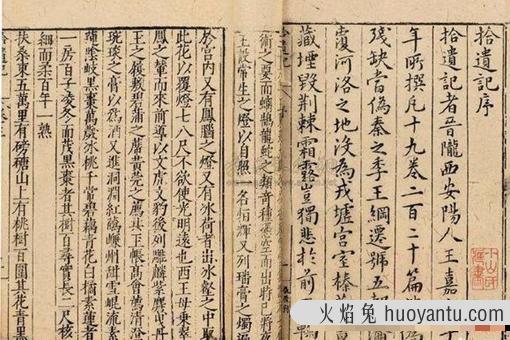 拾遺記序
拾遺記者晉隴西安陽人王嘉
年所撰凡十九卷二百二十篇
殘缺當偽秦之季王綱遷號五
覆河洛之地沒為戎墟宮室榛
藏堙毀荊棘霜露豈獨悲於前
之類奇種憑空而出將
王設常生之燈以自照一名恒輝又列璠膏之燭遍
於宮內又有鳳腦之燈又有冰荷者出冰壑之中取
此花以覆燈七八尺不欲使光明遠也西王母乘翠
鳳之輦而來前導以文虎文豹後列雕麟紫麏曳丹
玉之履敷碧蒲之席黃莞之薦共玉帳高會薦清澄
琬琰之膏以為酒又進洞淵紅嵰州甜雪崑流素
蓮陰岐黑棗萬歲冰桃千常碧藕青花白橘素蓮者
一房百子凌冬而茂黑棗者其樹百尋實長二尺核
細而柔百年一熟
扶桑東五萬里有磅磄山上有桃樹百圍其花青黑
火焰兔
huoyantu.com